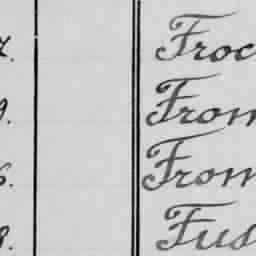 7. Froc
9. From
6. From
8. Fus